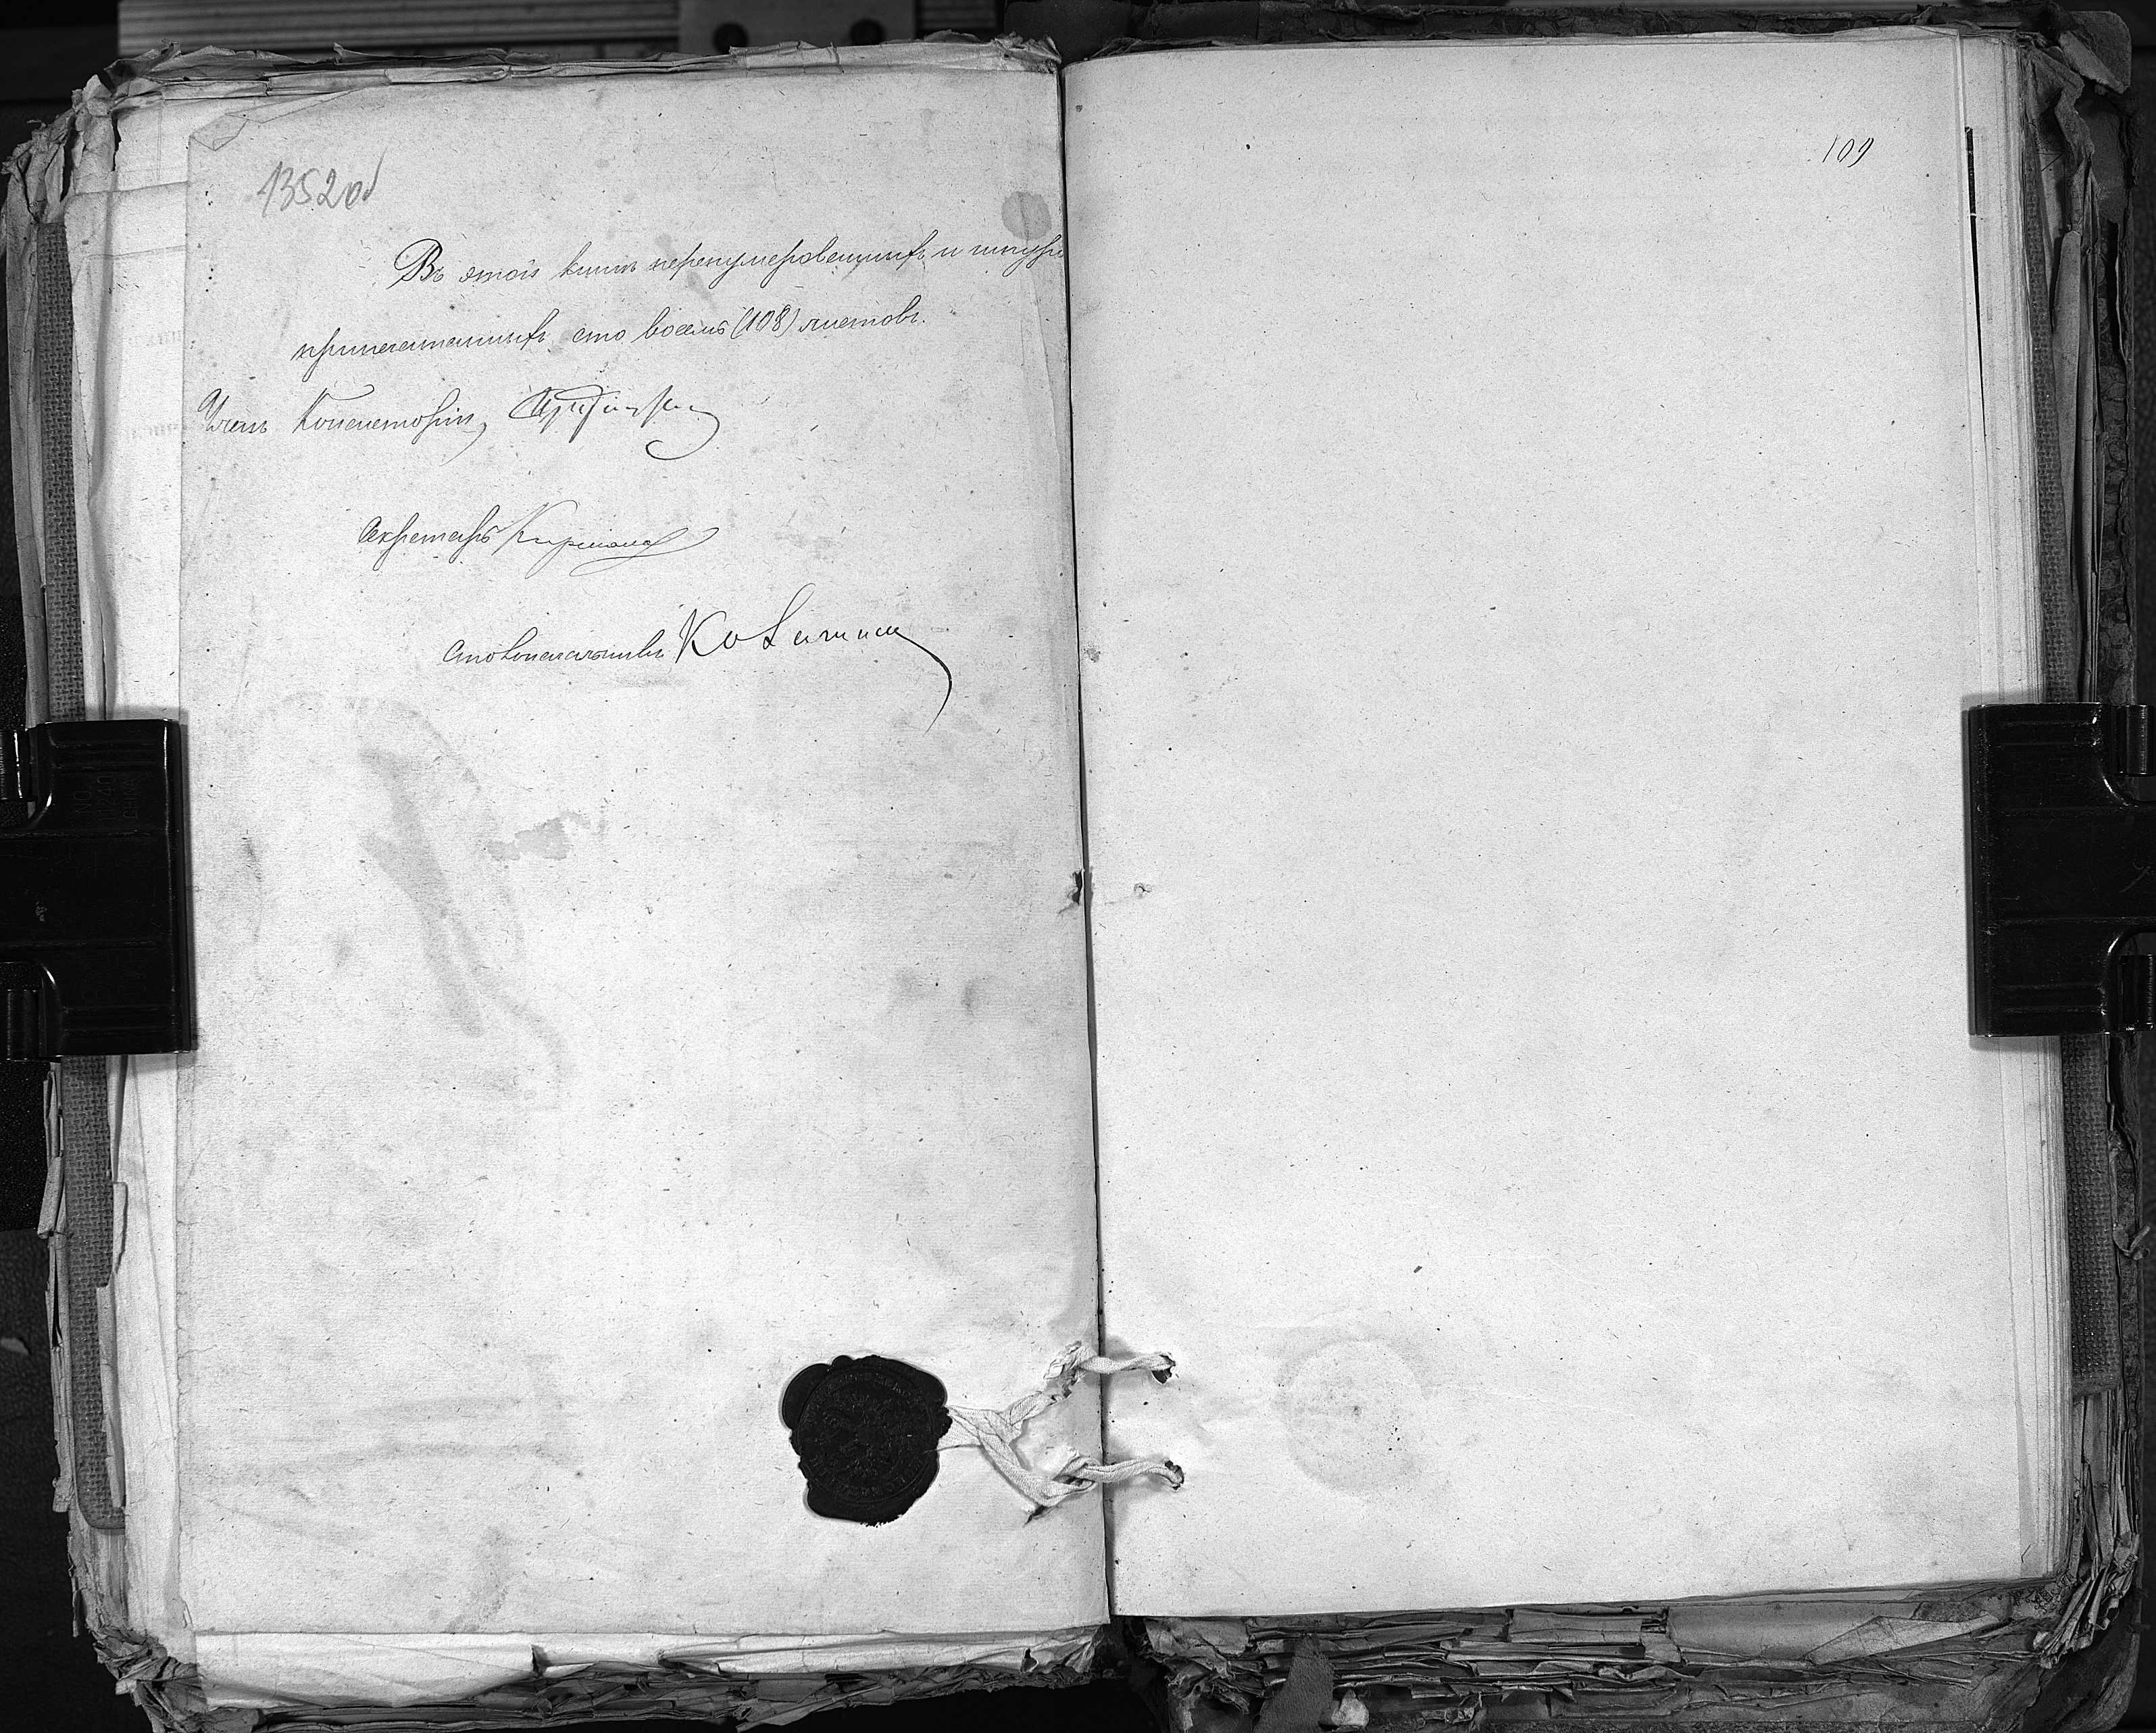 1352об
Въ этой книгѣ перенумерованныхъ и шнуро
припечатанныхъ сто восемь (108) листовъ.
Членъ Консисторіи,
Секретарь
Столоначальникъ
109